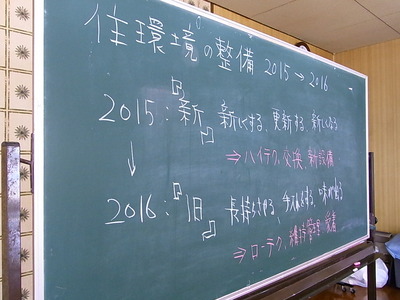 住環境の整備 2015→2016
2015:『新』 新しくする、更新する、新しくなる
⇒ハイテク、交換、新設備
↓
2016:『旧』 長持ちさせる、手入れをする、味が出る
⇒ローテク、維持管理、愛着